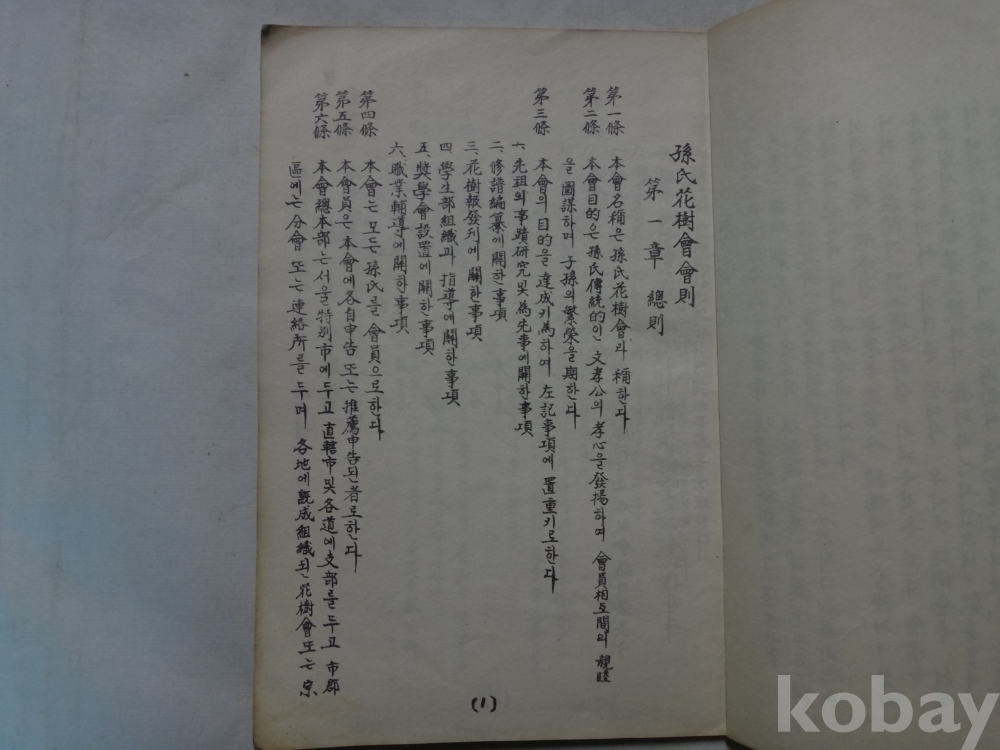 孫氏花樹會會則
第一章 總則
第一條 本會名稱은 孫氏花樹會라 稱한다
第二條 本會目的은 孫氏傳統的인 文孝公의 孝心을 發揚하여 會員相互間의 親睦
을 圖謀하며 子孫의 繁榮을 期한다
第三條 本會의 目的을 達成키 爲하여 左記事項에 置重키로한다
一、先祖의 事蹟硏究 및 爲先事에 關한 事項
二、修譜編纂에 關한 事項
三、花樹報發刊에 關한 事項
四、學生部組織과 指導에 關한 事項
五、奬學會設置에 關한 事項
六、職業輔導에 關한 事項
第四條 本會는 모든 孫氏를 會員으로한다
第五條 本會員은 本會에 各自申告 또는 推薦申告된 者로한다
第六條 本會總本部는 서울特別市에 두고 直轄市 및 各道에 支部를 두고 市郡
區에는 分會 또는 連絡所를 두며 各地에 旣成組織된 花樹會 또는 宗
(1)
kobay